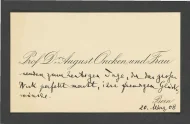 Prof. Dr. August Oncken und Frau
senden zum heutigen Tage, da das große
Werk perfekt macht, ihre Glück-
wünsche.
Bern
20. März 08